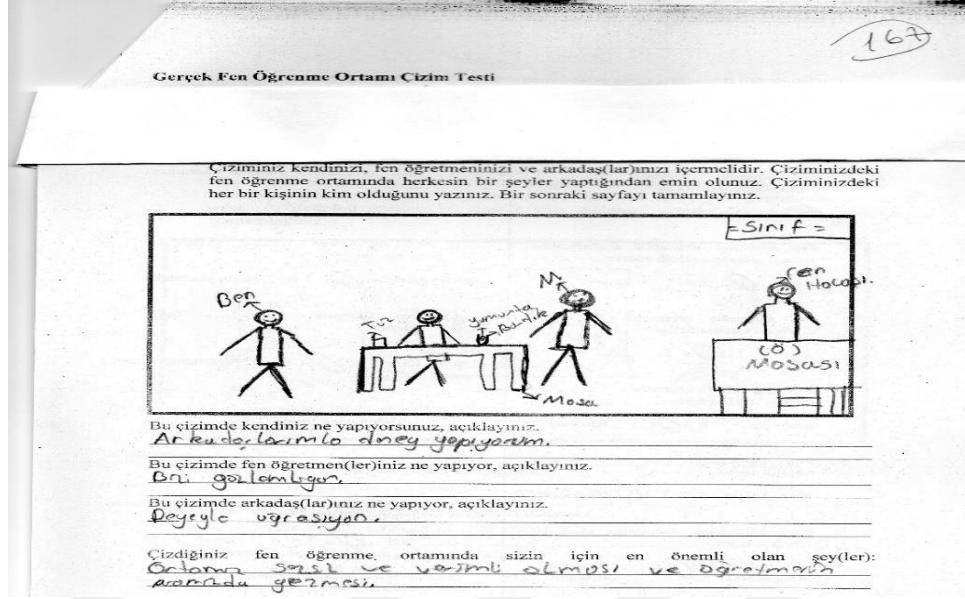 167
Gerçek Fen Öğrenme Ortamı Çizim Testi
Çiziminiz kendinizi, fen öğretmeninizi ve arkadaş(lar)ınızı içermelidir. Çiziminizdeki
fen öğrenme ortamında herkesin bir şeyler yaptığından emin olunuz. Çiziminizdeki
her bir kişinin kim olduğunu yazınız. Bir sonraki sayfayı tamamlayınız.
=Sınıf=
fen
Hocası.
Ben
M
Tuz
yumurta
Bardak
(Ö)
Masası
Masa
Bu çizimde kendiniz ne yapıyorsunuz, açıklayınız.
Arkadaşlarımla dney yapıyorum.
Bu çizimde fen öğretmen(ler)iniz ne yapıyor, açıklayınız.
Bizi gözlemliyor.
Bu çizimde arkadaş(lar)ınız ne yapıyor, açıklayınız.
Deyeyle uğraşıyor.
Çizdiğiniz fen öğrenme ortamında sizin için en önemli olan şey(ler):
Ortamın sessiz ve verimli olması ve öğretmenin
aramızda gezmesi.